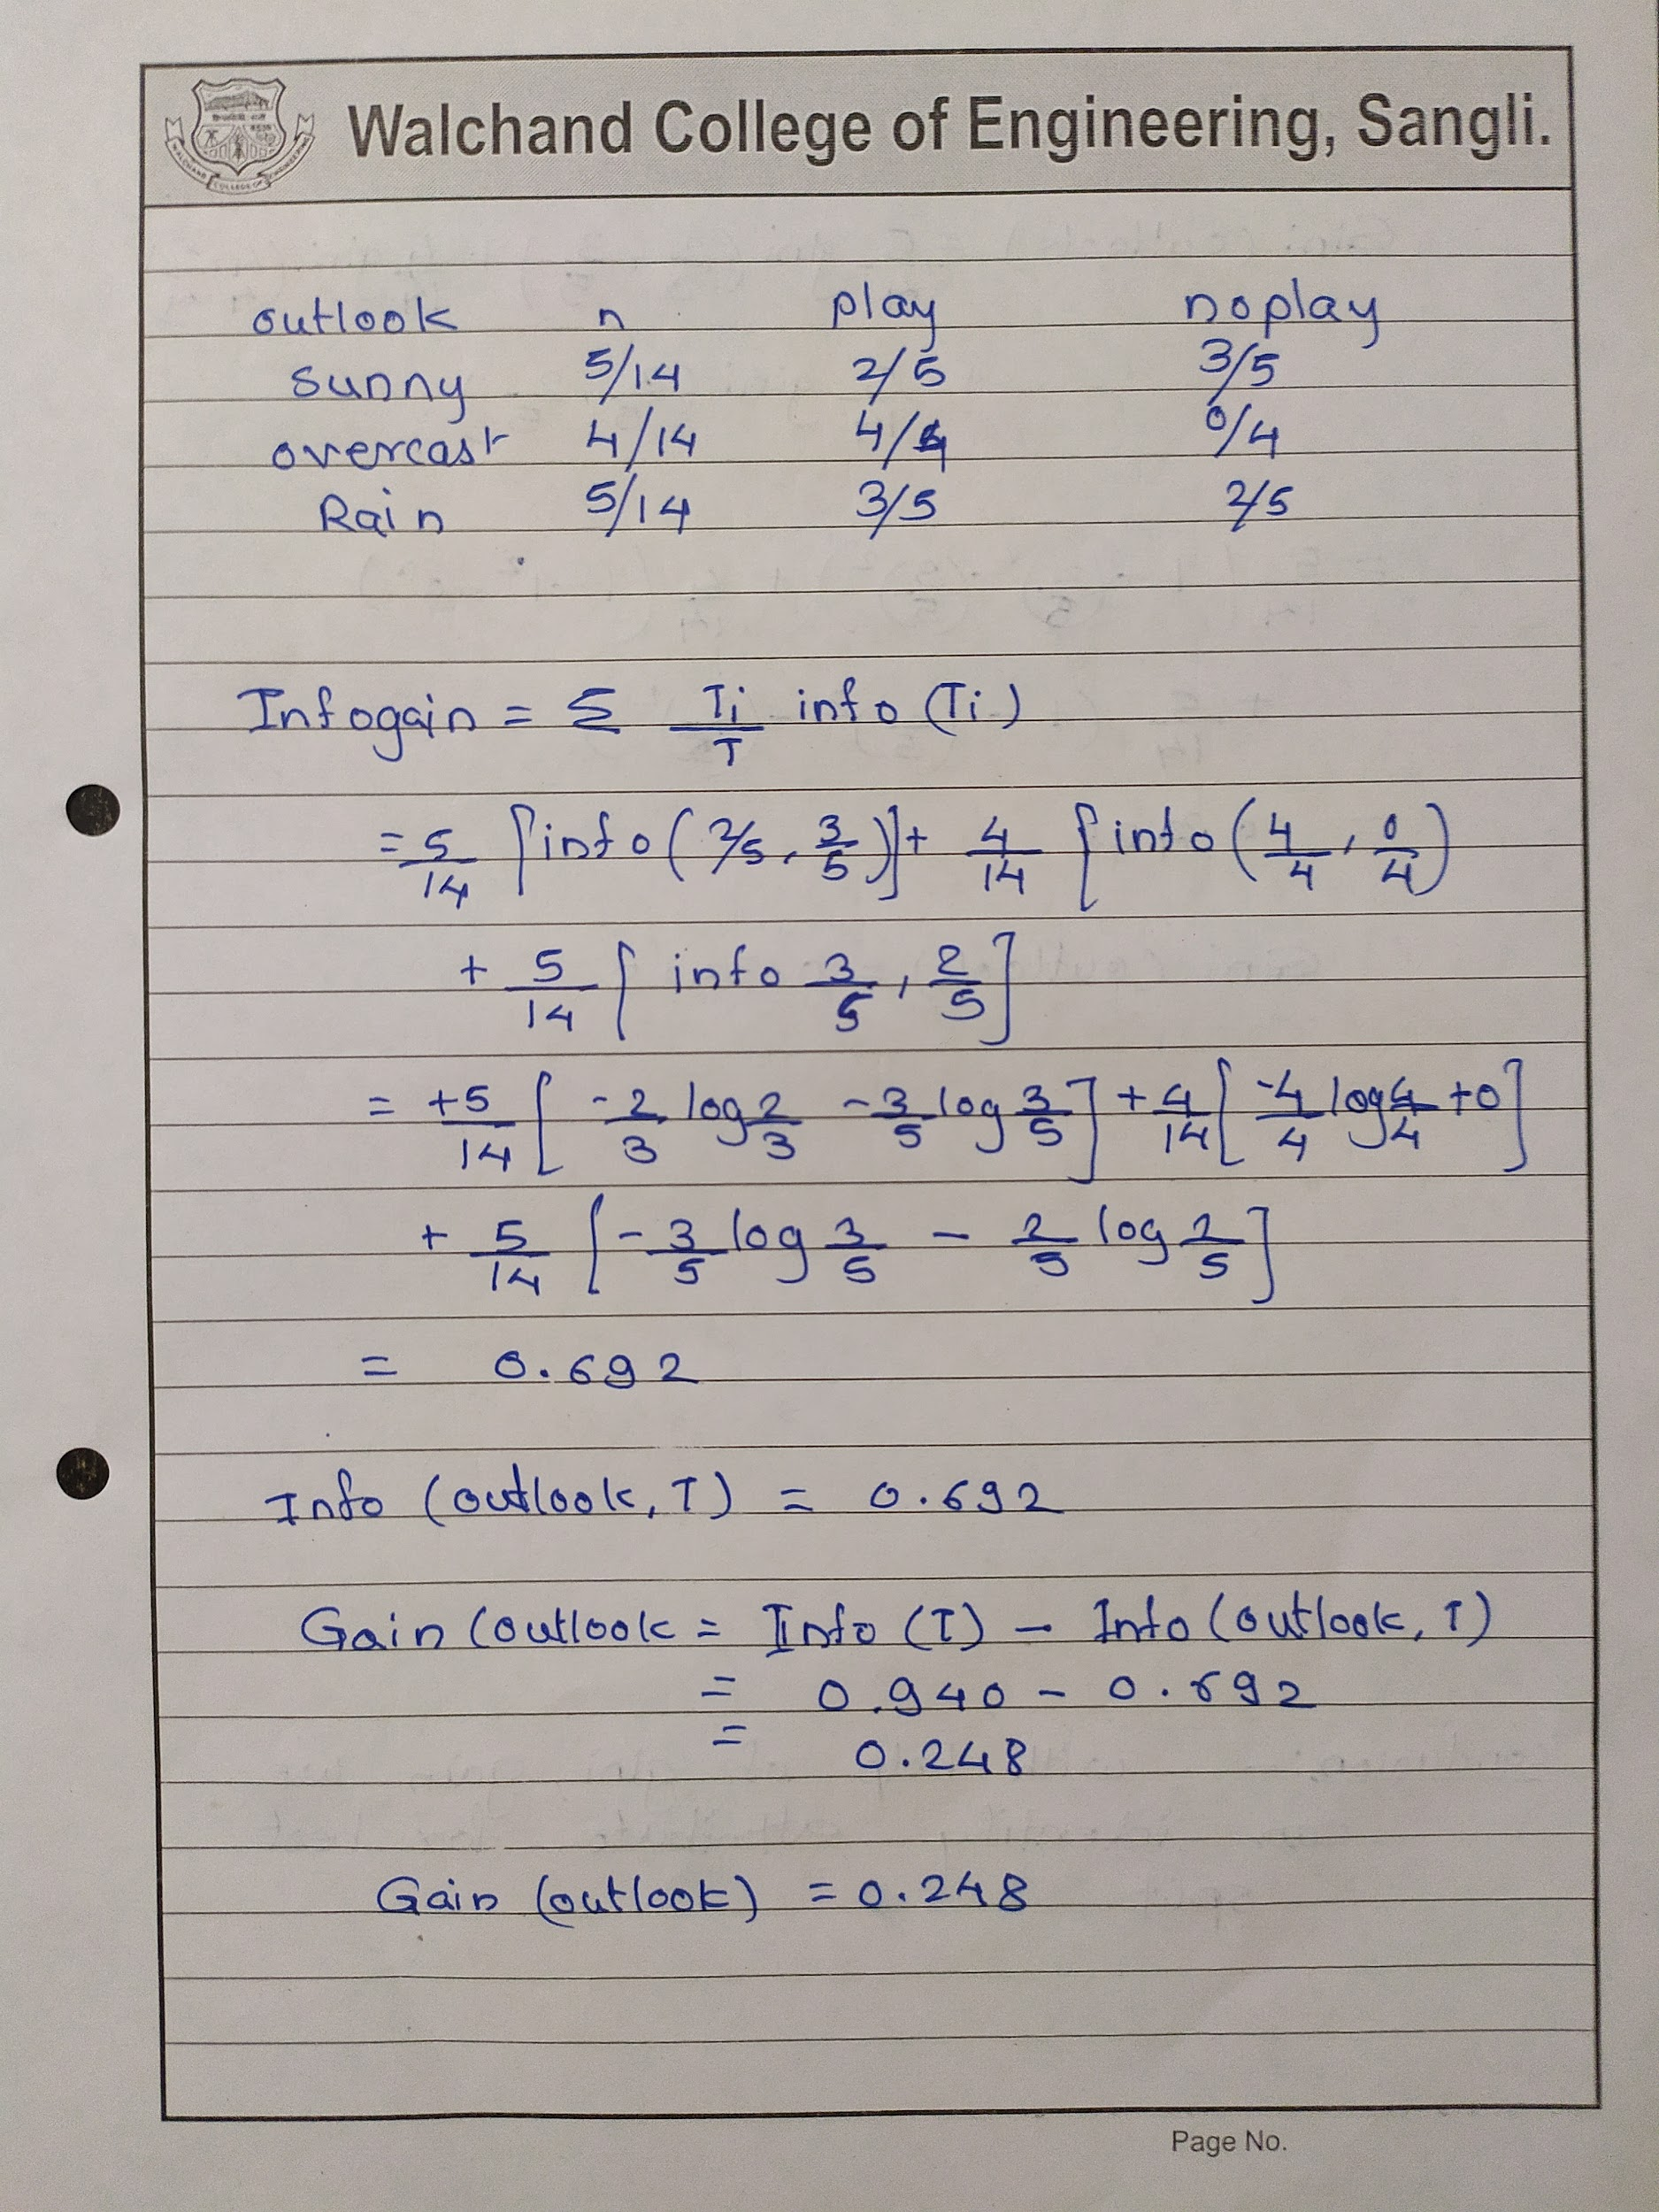 Walchand College of Engineering, Sangli.
outlook n play no play
sunny 5/14 2/5 3/5
overcast 4/14 4/4 0/4
Rain 5/14 3/5 2/5
Infogain = Σ Ti/T info (Ti)
= 5/14 [info (2/5, 3/5)] + 4/14 [info (4/4, 0/4)
+ 5/14 [ info 3/5, 2/5]
= +5/14 [ -2/3 log 2/3 - 3/5 log 3/5] + 4/14 [ -4/4 log 4/4 + 0]
+ 5/14 [ - 3/5 log 3/5 - 2/5 log 2/5]
= 0.692
Info (outlook, T) = 0.692
Gain (outlook = Info (T) - Info (outlook, T)
= 0.940 - 0.692
= 0.248
Gain (outlook) = 0.248
Page No.